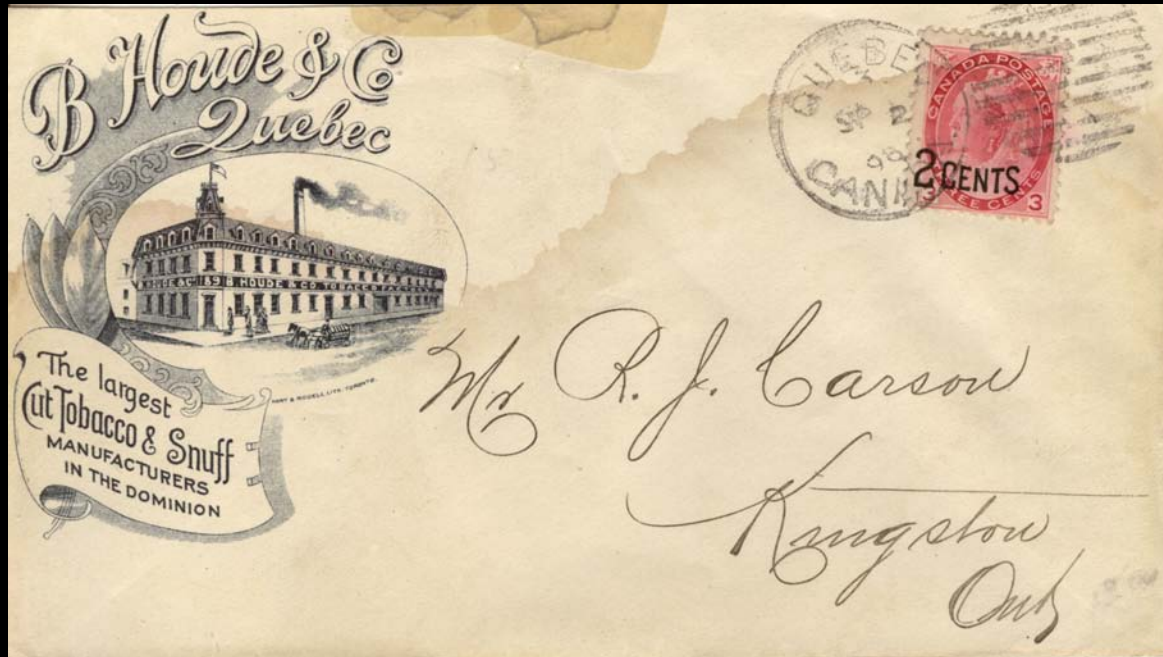 B Houde & Co
Quebec
B. HOUDE & Co. 189 B. HOUDE & CO. TOBACCO FACTORY
The largest
Cut Tobacco & Snuff
MANUFACTURERS
IN THE DOMINION
LITH. TORONTO.
QUEBEC
SP 2
98
CANADA
CANADA POSTAGE
2 CENTS
THREE CENTS
3 3
Mr R. J. Carson
Kingston
Ont